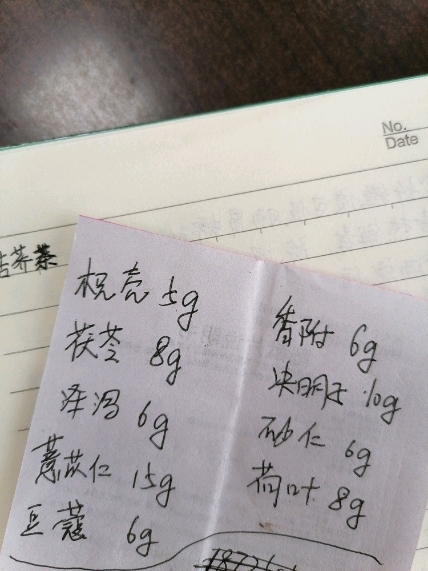 No.
Date
荞茶
枳壳 5g
茯苓 8g
泽泻 6g
薏苡仁 15g
豆蔻 6g
香附 6g
决明子 10g
砂仁 6g
荷叶 8g